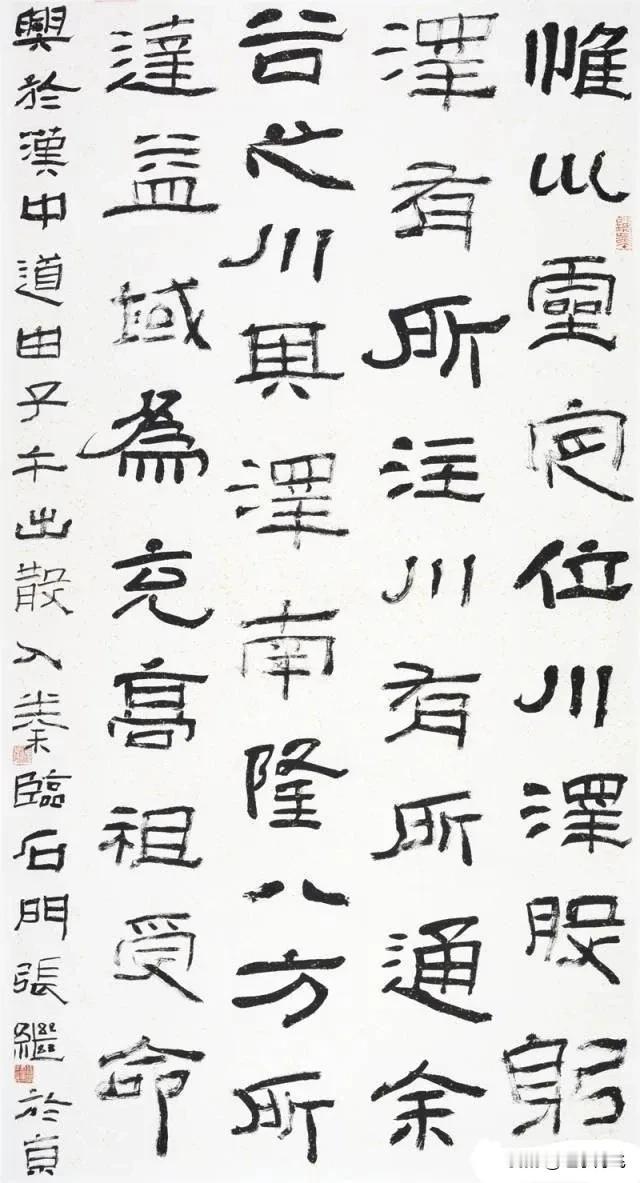 惟巛靈定位川澤股躬
澤有所注川有所通余
谷之川其澤南隆八方所
達益域為充高祖受命
興於漢中道由子午出散入秦臨石門張繼於